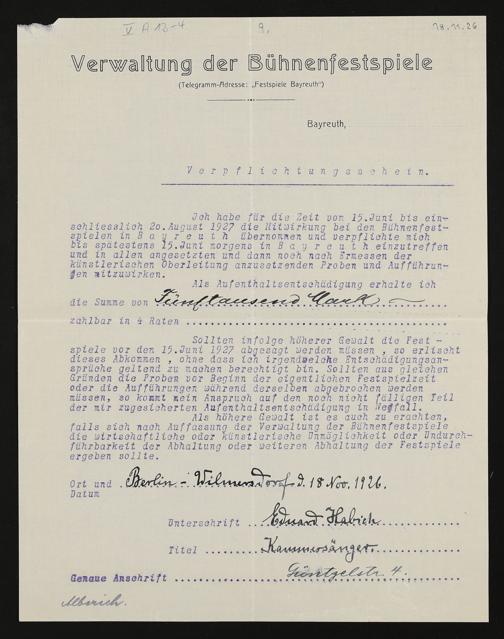 V A 13-4
9.
18.11.26
Verwaltung der Bühnenfestspiele
(Telegramm-Adresse: „Festspiele Bayreuth")
Bayreuth,
Verpflichtungsschein.
Ich habe für die Zeit vom 15.Juni bis ein-
schliesslich 2o.August 1927 die Mitwirkung bei den Bühnenfest-
spielen in B a y r e u t h übernommen und verpflichte mich
bis spätestens 15.Juni morgens in B a y r e u t h einzutreffen
und in allen angesetzten und dann noch nach Ermessen der
künstlerischen Oberleitung anzusetzenden Proben und Aufführun-
gen mitzuwirken.
Als Aufenthaltsentschädigung erhalte ich
die Summe von Fünftausend Mark
zahlbar in 4 Raten
Sollten infolge höherer Gewalt die Fest -
spiele vor dem 15.Juni 1927 abgesagt werden müssen , so erlischt
dieses Abkommen , ohne dass ich irgendwelche Entschädigungsan-
sprüche geltend zu machen berechtigt bin. Sollten aus gleichen
Gründen die Proben vor Beginn der eigentlichen Festspielzeit
oder die Aufführungen während derselben abgebrochen werden
müssen, so kommt mein Anspruch auf den noch nicht fälligen Teil
der mir zugesicherten Aufenthaltsentschädigung in Wegfall.
Als höhere Gewalt ist es auch zu erachten,
falls sich nach Auffassung der Verwaltung der Bühnenfestspiele
die wirtschaftliche oder künstlerische Unmöglichkeit oder Undurch-
führbarkeit der Abhaltung oder weiteren Abhaltung der Festspiele
ergeben sollte.
Ort und Berlin - Wilmersdorf d. 18 Nov. 1926.
Datum
Unterschrift Eduard Habich
Titel Kammersänger.
Genaue Anschrift Güntzelstr 4.
Alberich.